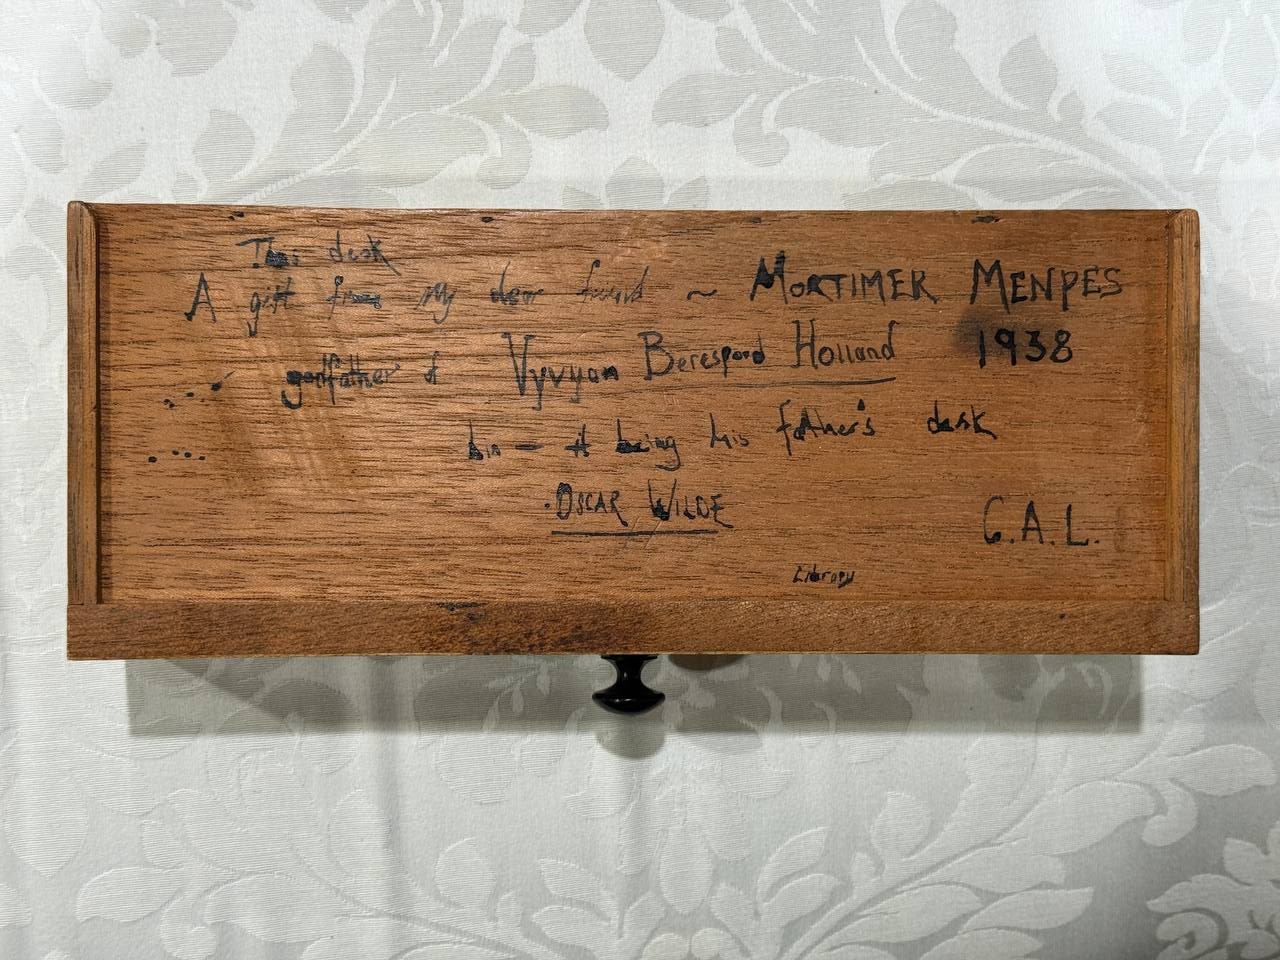 This desk
A gift from my dear friend ~ MORTIMER MENPES
godfather of Vyvyan Beresford Holland 1938
his — it being his father's desk
OSCAR WILDE
C.A.L.
Library